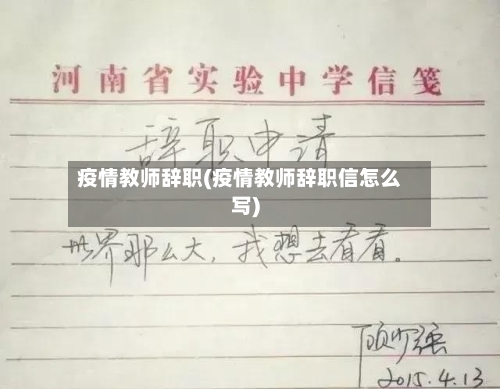 河南省实验中学信笺
辞职申请
疫情教师辞职(疫情教师辞职信怎么
写)
世界那么大,我想去看看。
顾少强
2015.4.13